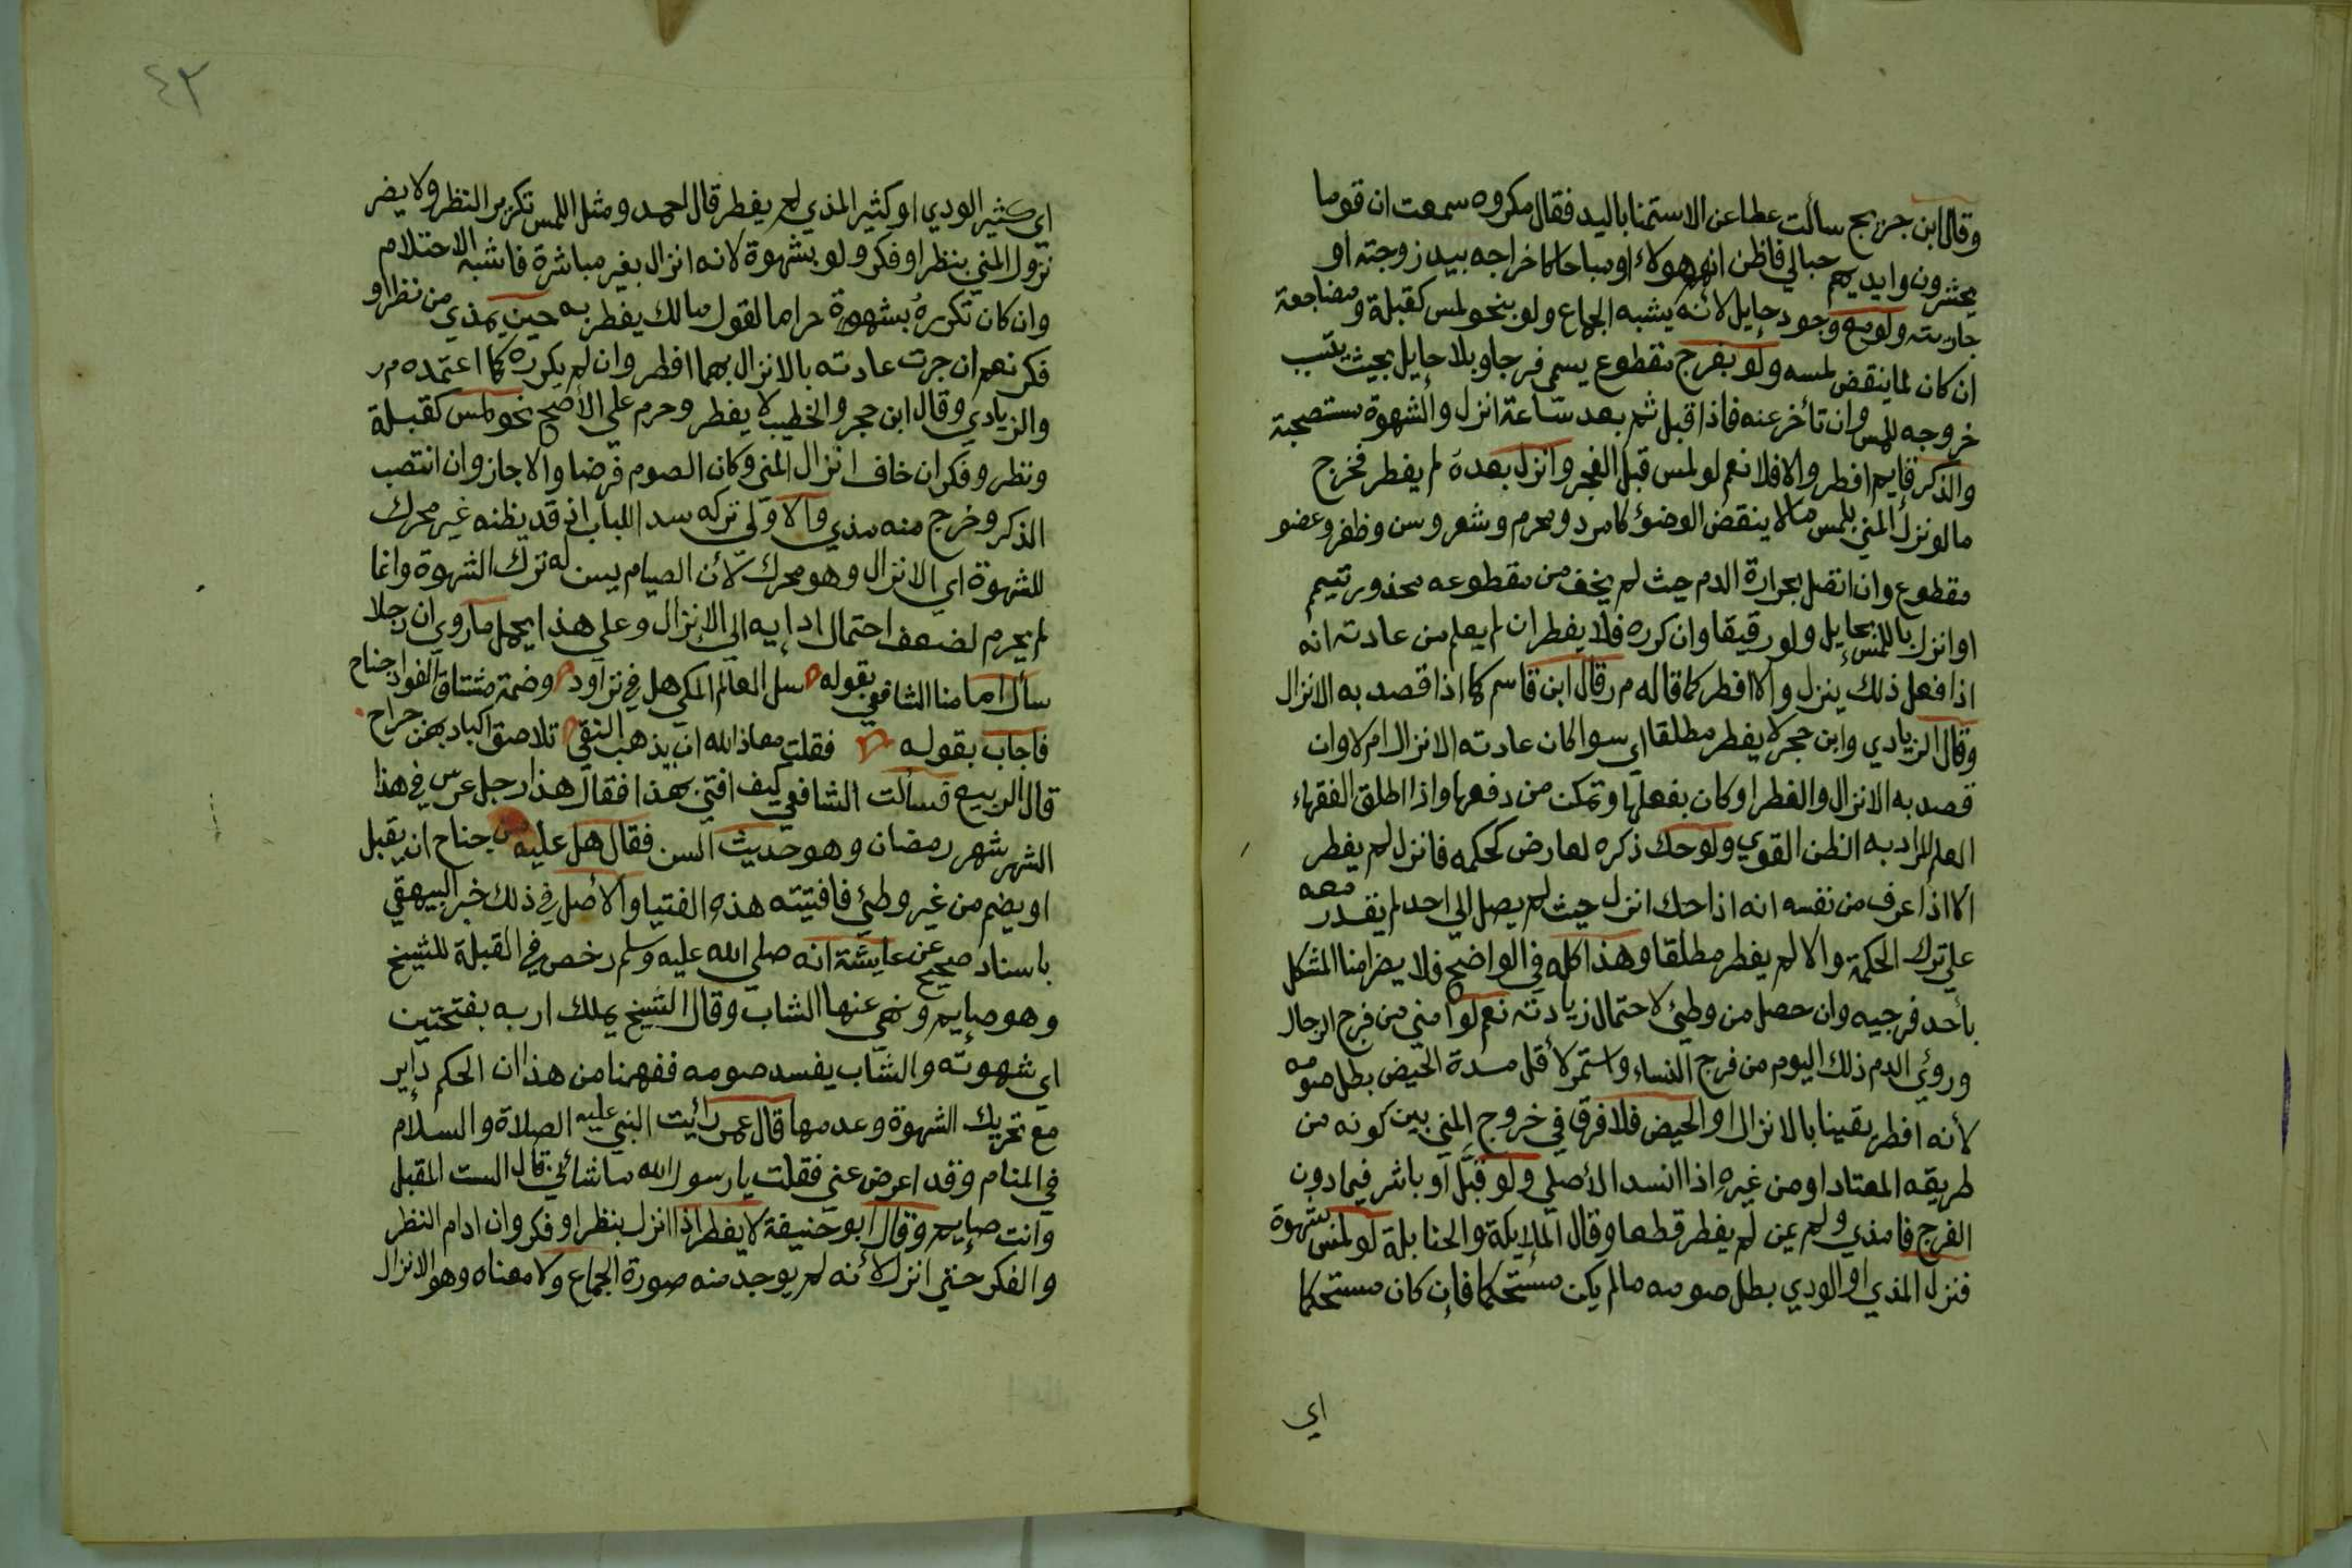 وقال ابن جريج سألت عطا عن الاستمنا باليد فقال مكروه سمعت ان قوما
يحشرون وايديهم حبالي فاظن انهم هولاء او مباحا كاخراجه بيد زوجته او
جاريته ولو مع وجود حايل لأنه يشبه الجماع ولو بنحو لمس كقبلة ومضاجعة
ان كان لما ينقض لمسه ولو بفرج مقطوع يسمى فرجا وبلا حايل بحيث
خروجه للمس وان تأخر عنه فاذا قبل ثم بعد ساعة انزل والشهوة مستصحبة
والذكر قايم افطر والا فلا نعم لو لمس قبل الفجر وانزل بعده لم يفطر فخرج
ما لو نزل المني بلمس ما لا ينقض الوضؤ كامرد ومحرم وشعر وسن وظفر وعضو
مقطوع وان اتصل بحرارة الدم حيث لم يخف من مقطوعه محذور تيمم
او انزل باللمس بحايل ولو رقيقا وان كرره فلا يفطر ان لم يعلم من عادته انه
اذا فعل ذلك ينزل والا افطر كما قاله م ر قال ابن قاسم كما اذا قصد به الانزال
وقال الزيادي وابن حجر لا يفطر مطلقا اي سوا كان عادته الانزال ام لا وان
قصد به الانزال والفطر او كان بفعلها وتمكن من دفعها واذا اطلق الفقهاء
العلم المراد به الظن القوي ولو حك ذكره لعارض كحكمه فانزل لم يفطر
الا اذا عرف من نفسه انه اذا حك انزل حيث لم يصل الى احد لم يقدر معه
على ترك الحكمة والا لم يفطر مطلقا وهذا كله في الواضح فلا يضر امنا المشكل
بأحد فرجيه وان حصل من وطئ لاحتمال زيادته نعم لو امنى من فرج الرجال
ورؤي الدم ذلك اليوم من فرج النساء واستمر لأقل مدة الحيض بطل صومه
لأنه افطر يقينا بالانزال او الحيض فلا فرق في خروج المني بين كونه من
طريقه المعتاد او من غيره اذا انسد الأصلي ولو قبل او باشر فيما دون
الفرج فامذي ولم يمن لم يفطر قطعا وقال المالكية والحنابلة لو لمس بشهوة
فنزل المذي او الودي بطل صومه ما لم يكن مستحكما فان كان مستحكما
اي
٤٣
اي كثير الودي او كثير المذي لم يفطر قال احمد ومثل اللمس تكرير النظر ولا يضر
نزول المني بنظر او فكر ولو بشهوة لانه انزال بغير مباشرة فاشبه الاحتلام
وان كان تكرره بشهوة حراما لقول مالك يفطر به حين يمذي من نظر او
فكر نعم ان جرت عادته بالانزال بهما افطر وان لم يكرره كما اعتمده م ر
والزيادي وقال ابن حجر والخطيب لا يفطر وحرم على الأصح نحو لمس كقبلة
ونظر وفكر ان خاف انزال المني وكان الصوم فرضا والا جاز وان انتصب
الذكر وخرج منه مذي والاولى تركه سدا للباب اذ قد يظنه غير محرك
للشهوة اي الانزال وهو محرك لأن الصيام يسن له ترك الشهوة وانما
لم يحرم لضعف احتمال ادايه الى الانزال وعلى هذا يحمل ما روي ان رجلا
سأل امامنا الشافعي بقوله سل العالم المكي هل في تزاور وضمة مشتاق الفواد جناح
فاجاب بقوله فقلت معاذ الله ان يذهب التقى تلاصق اكباد بهن جراح
قال الربيع فسألت الشافعي كيف افتى بهذا فقال هذا رجل عرس في هذا
الشهر شهر رمضان وهو حديث السن فقال هل عليه من جناح ان يقبل
او يضم من غير وطئ فافتيته هذه الفتيا والأصل في ذلك خبر البيهقي
باسناد صحيح عن عايشة انه صلى الله عليه وسلم رخص في القبلة للشيخ
وهو صايم ونهى عنها الشاب وقال الشيخ يملك اربه بفتحتين
اي شهوته والشاب يفسد صومه ففهمنا من هذا ان الحكم داير
مع تحريك الشهوة وعدمها قال عمر رأيت النبي عليه الصلاة والسلام
في المنام وقد اعرض عني فقلت يا رسول الله ما شأني قال الست المقبل
وانت صايم وقال ابو حنيفة لا يفطر اذا انزل بنظر او فكر وان ادام النظر
والفكر حتى انزل لأنه لم يوجد منه صورة الجماع ولا معناه وهو الانزال